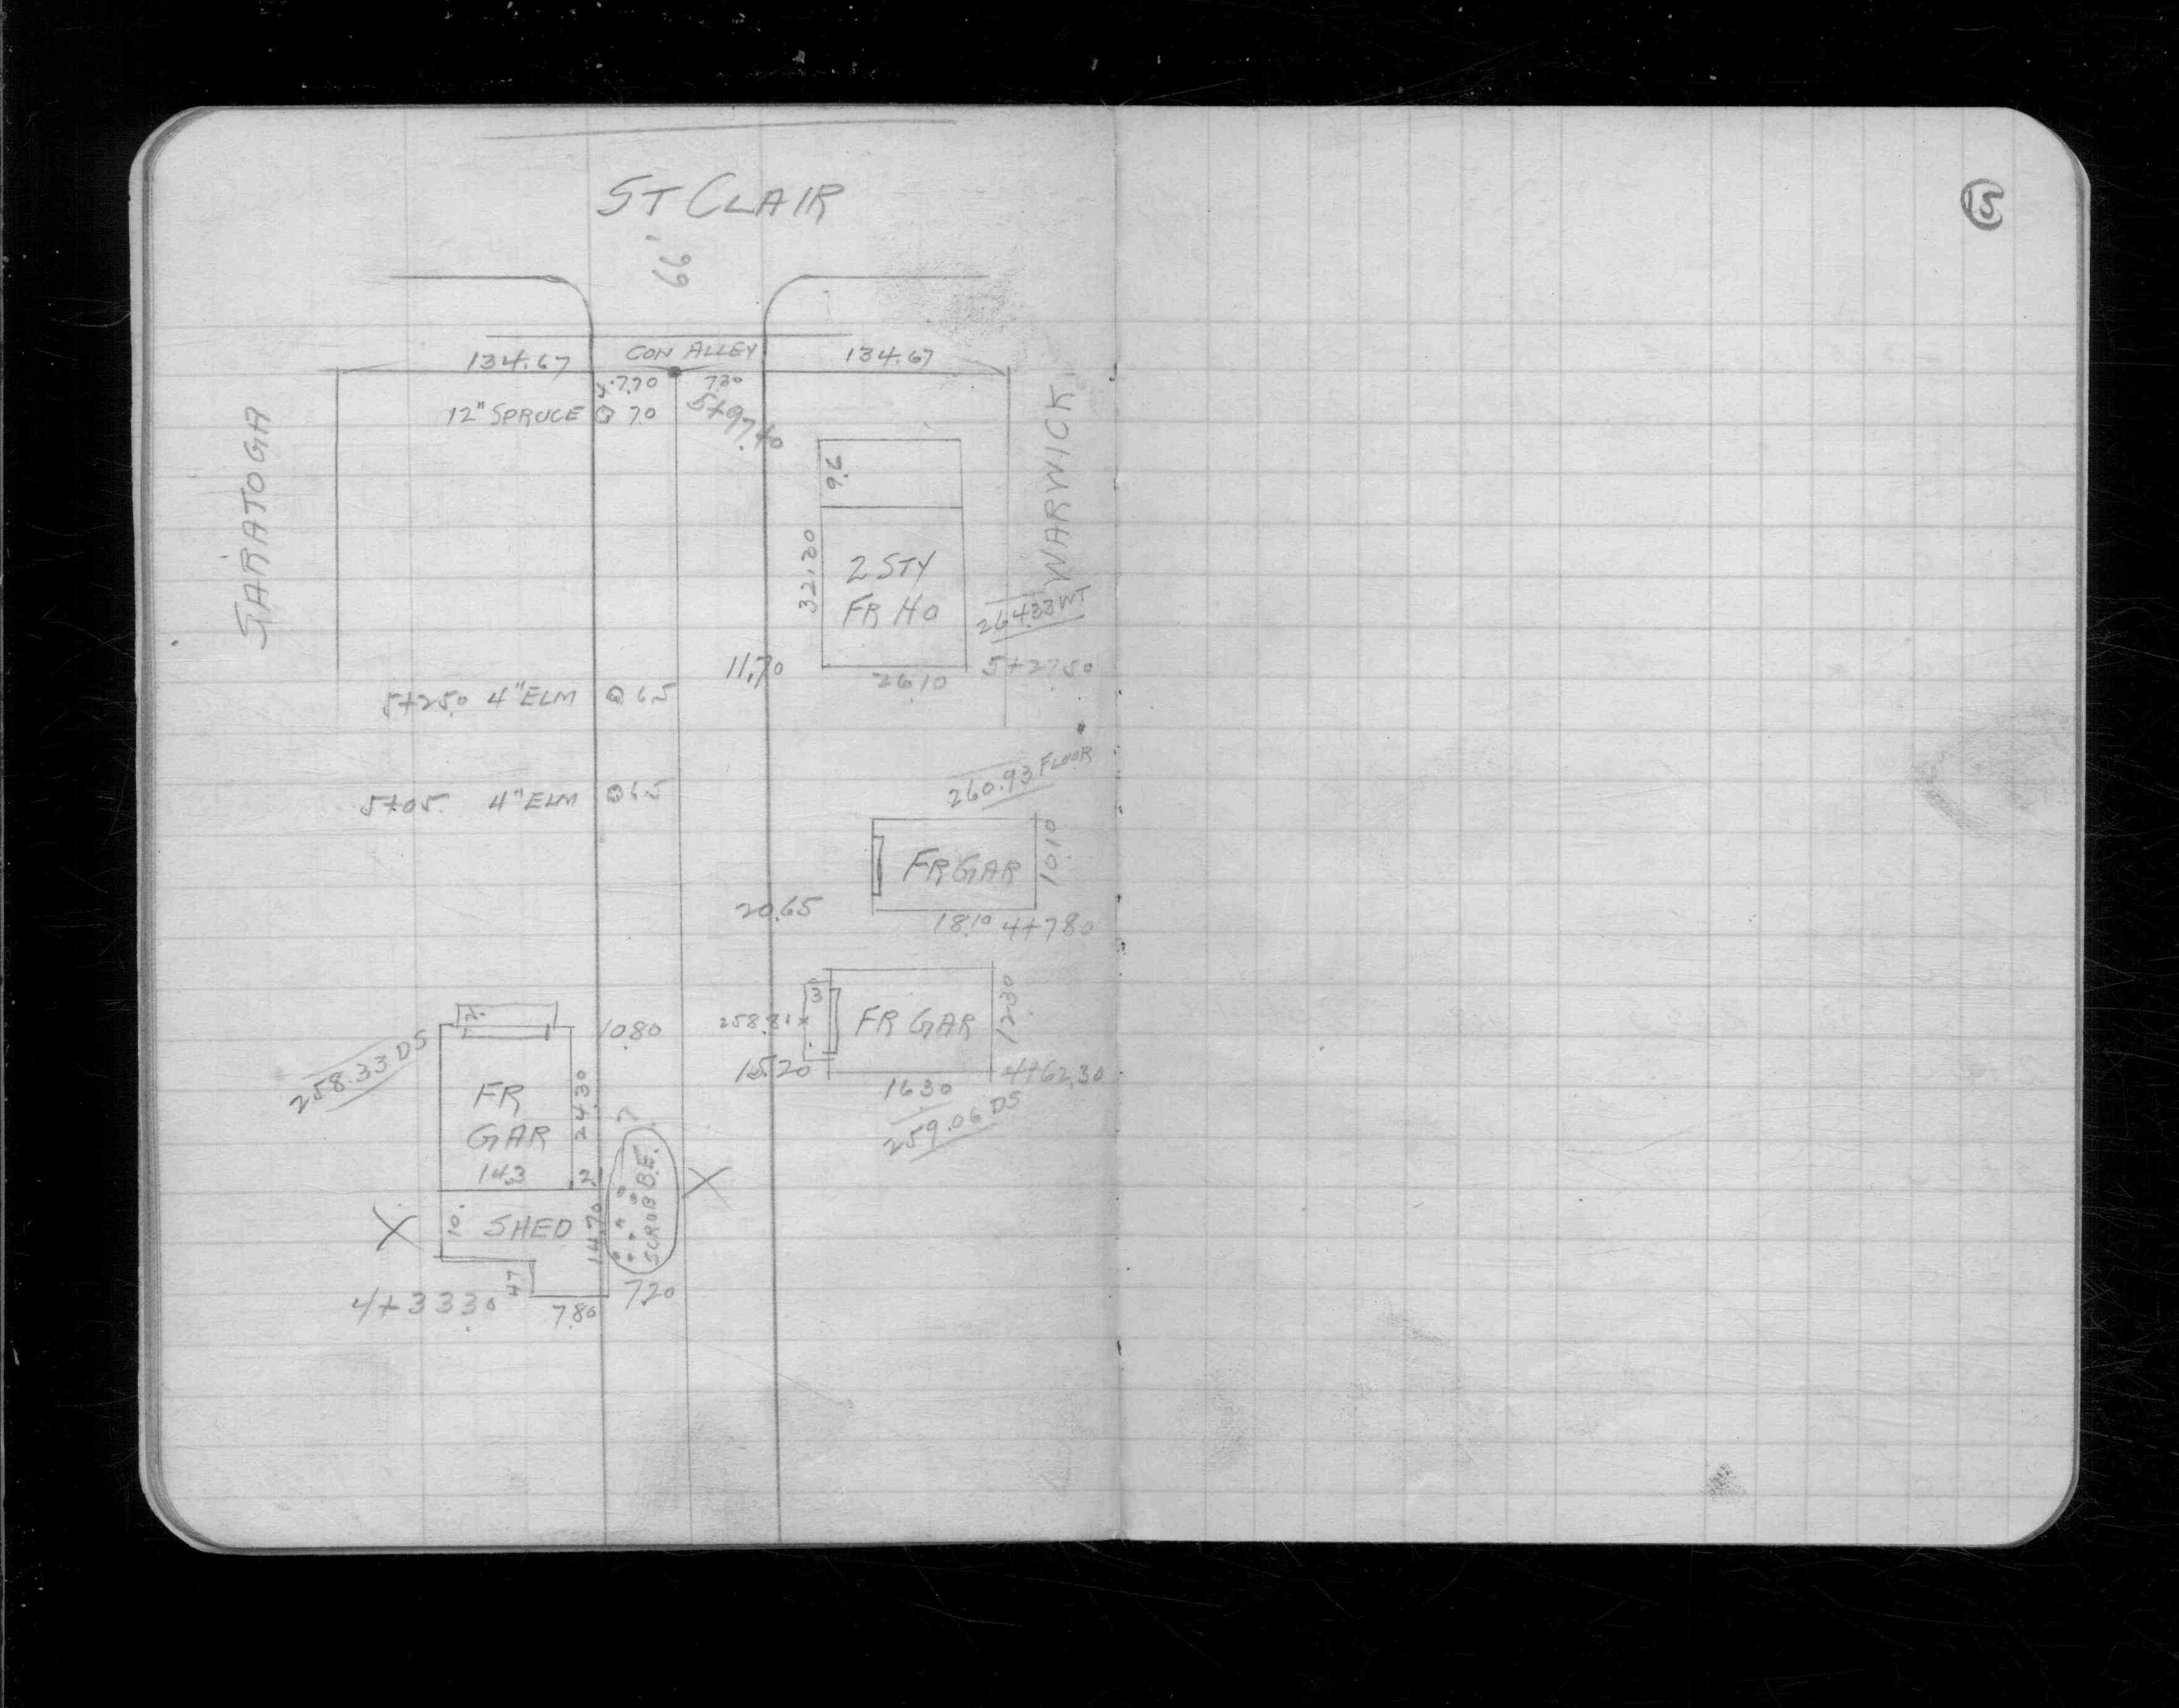 15
ST CLAIR
66'
134.67
CON ALLEY
134.67
7.70
7.30
12" SPRUCE 7.0
5+97.40
SARATOGA
WARWICK
9.6
32.20
2 STY
FR HO
264.33 WT
11.70
26.10
5+27.50
5+25.0 4" ELM 6.5
260.93 FLOOR
5+05. 4" ELM 6.5
FR GAR
10.10
20.65
18.10
4+78.0
3
258.81 x
FR GAR
12.30
15.20
16.30
4+62.30
259.06 DS
2.
10.80
258.33 DS
FR
GAR
24.30
14.3
2
7
SCRUB B.E.
X
X
10'
SHED
14.70
4+33.30
4.7
7.80
7.20